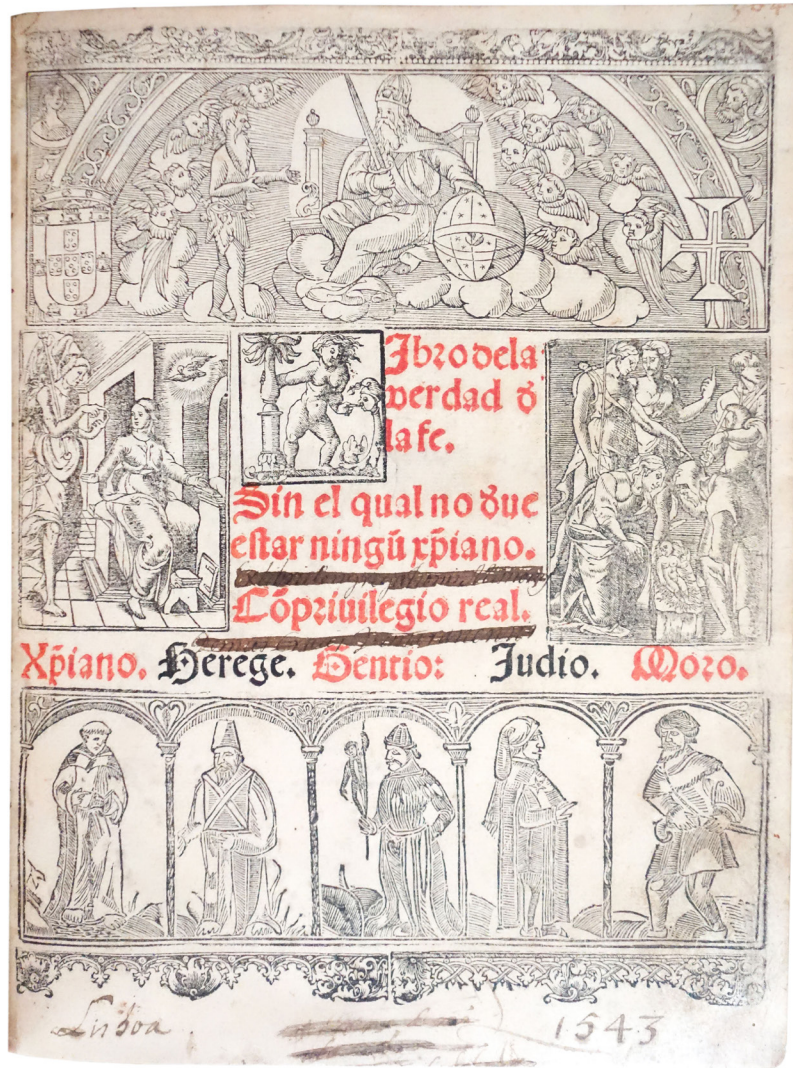 Libro dela
verdad d̓
la fe.
Sin el qual no d̓ue
estar ningũ xp̃iano.
Cõpriuilegio real.
Xp̃iano. Herege. Gentio: Judio. Moro.
Lisboa 1543